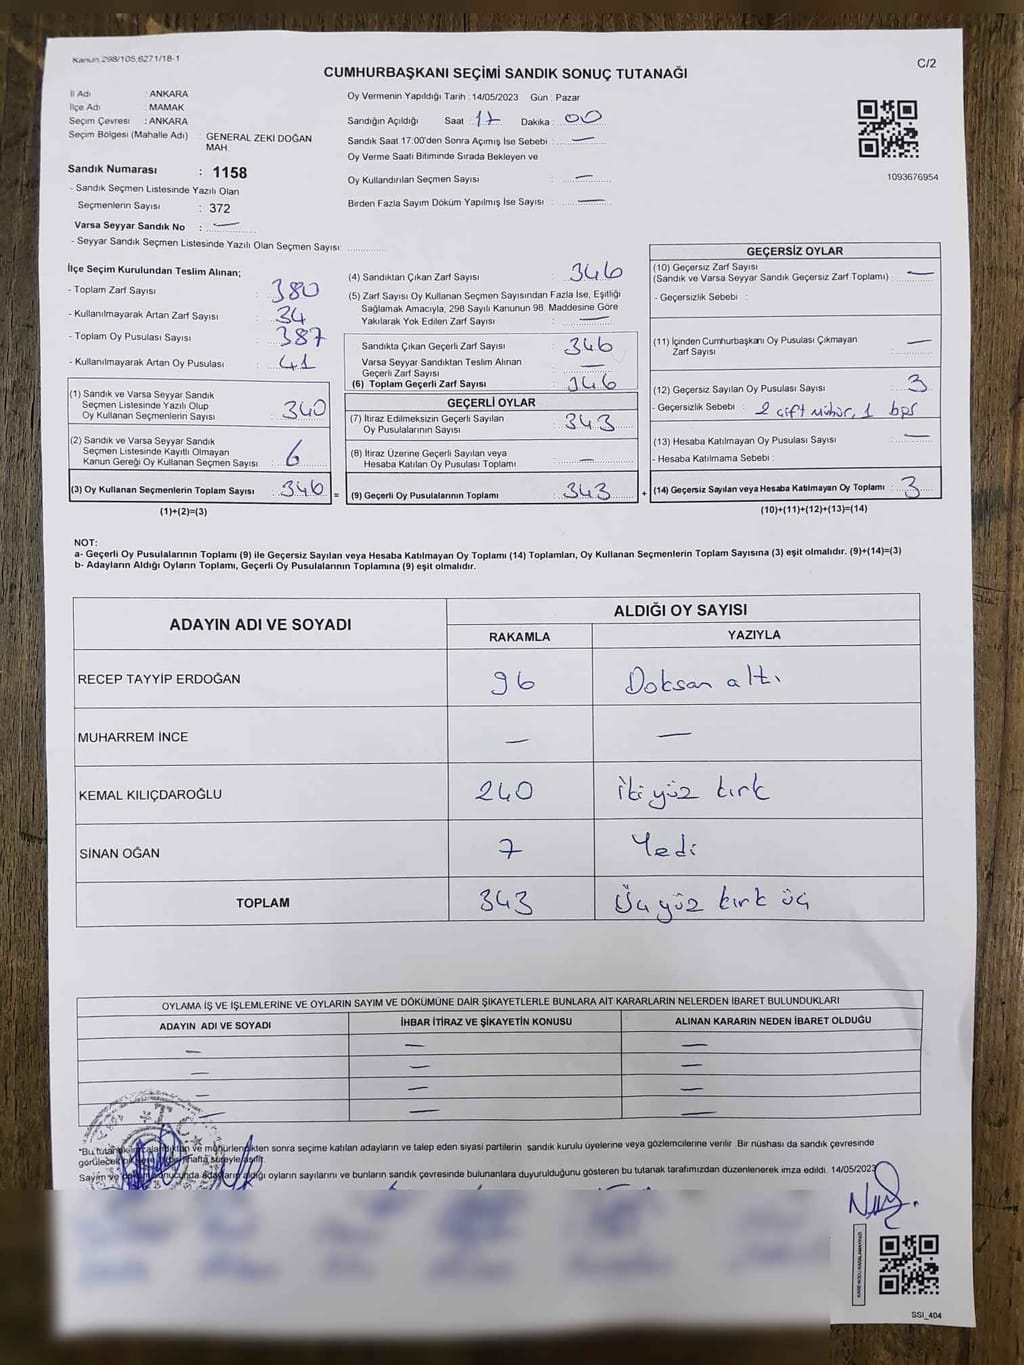 Kanun 298/105,6271/18-1
C/2
CUMHURBAŞKANI SEÇİMİ SANDIK SONUÇ TUTANAĞI
İl Adı : ANKARA
İlçe Adı : MAMAK
Seçim Çevresi : ANKARA
Seçim Bölgesi (Mahalle Adı) GENERAL ZEKİ DOĞAN
MAH
Sandık Numarası : 1158
- Sandık Seçmen Listesinde Yazılı Olan
Seçmenlerin Sayısı : 372
Varsa Seyyar Sandık No : —
- Seyyar Sandık Seçmen Listesinde Yazılı Olan Seçmen Sayısı:
Oy Vermenin Yapıldığı Tarih : 14/05/2023 Gün : Pazar
Sandığın Açıldığı Saat : 17 Dakika : 00
Sandık Saat 17:00'den Sonra Açımış İse Sebebi : —
Oy Verme Saati Bitiminde Sırada Bekleyen ve
Oy Kullandırılan Seçmen Sayısı : —
Birden Fazla Sayım Döküm Yapılmış İse Sayısı : —
1093676954
İlçe Seçim Kurulundan Teslim Alınan;
- Toplam Zarf Sayısı : 380
- Kullanılmayarak Artan Zarf Sayısı : 34
- Toplam Oy Pusulası Sayısı : 387
- Kullanılmayarak Artan Oy Pusulası : 41
(1) Sandık ve Varsa Seyyar Sandık
Seçmen Listesinde Yazılı Olup
Oy Kullanan Seçmenlerin Sayısı : 340
(2) Sandık ve Varsa Seyyar Sandık
Seçmen Listesinde Kayıtlı Olmayan
Kanun Gereği Oy Kullanan Seçmen Sayısı : 6
(3) Oy Kullanan Seçmenlerin Toplam Sayısı : 346 =
(1)+(2)=(3)
(4) Sandıktan Çıkan Zarf Sayısı : 346
(5) Zarf Sayısı Oy Kullanan Seçmen Sayısından Fazla İse, Eşitliği
Sağlamak Amacıyla; 298 Sayılı Kanunun 98. Maddesine Göre
Yakılarak Yok Edilen Zarf Sayısı : —
Sandıkta Çıkan Geçerli Zarf Sayısı : 346
Varsa Seyyar Sandıktan Teslim Alınan
Geçerli Zarf Sayısı : —
(6) Toplam Geçerli Zarf Sayısı : 346
GEÇERLİ OYLAR
(7) İtiraz Edilmeksizin Geçerli Sayılan
Oy Pusulalarının Sayısı : 343
(8) İtiraz Üzerine Geçerli Sayılan veya
Hesaba Katılan Oy Pusulası Toplamı : —
(9) Geçerli Oy Pusulalarının Toplamı : 343 +
GEÇERSİZ OYLAR
(10) Geçersiz Zarf Sayısı
(Sandık ve Varsa Seyyar Sandık Geçersiz Zarf Toplamı) : —
- Geçersizlik Sebebi :
(11) İçinden Cumhurbaşkanı Oy Pusulası Çıkmayan
Zarf Sayısı : —
(12) Geçersiz Sayılan Oy Pusulası Sayısı : 3
- Geçersizlik Sebebi : 2 çift mühür, 1 boş
(13) Hesaba Katılmayan Oy Pusulası Sayısı : —
- Hesaba Katılmama Sebebi :
(14) Geçersiz Sayılan veya Hesaba Katılmayan Oy Toplamı : 3
(10)+(11)+(12)+(13)=(14)
NOT:
a- Geçerli Oy Pusulalarının Toplamı (9) ile Geçersiz Sayılan veya Hesaba Katılmayan Oy Toplamı (14) Toplamları, Oy Kullanan Seçmenlerin Toplam Sayısına (3) eşit olmalıdır. (9)+(14)=(3)
b- Adayların Aldığı Oyların Toplamı, Geçerli Oy Pusulalarının Toplamına (9) eşit olmalıdır.
ADAYIN ADI VE SOYADI
ALDIĞI OY SAYISI
RAKAMLA YAZIYLA
RECEP TAYYİP ERDOĞAN 96 Doksan altı
MUHARREM İNCE — —
KEMAL KILIÇDAROĞLU 240 İki yüz kırk
SİNAN OĞAN 7 Yedi
TOPLAM 343 Üç yüz kırk üç
OYLAMA İŞ VE İŞLEMLERİNE VE OYLARIN SAYIM VE DÖKÜMÜNE DAİR ŞİKAYETLERLE BUNLARA AİT KARARLARIN NELERDEN İBARET BULUNDUKLARI
ADAYIN ADI VE SOYADI İHBAR İTİRAZ VE ŞİKAYETİN KONUSU ALINAN KARARIN NEDEN İBARET OLDUĞU
— — —
— — —
— — —
— — —
"Bu tutanak ve mühürlendikten sonra seçime katılan adayların ve talep eden siyasi partilerin sandık kurulu üyelerine veya gözlemcilerine verilir. Bir nüshası da sandık çevresinde
görülecek hafta süreyle asılır.
Sayım ve adayların aldığı oyların sayılarını ve bunların sandık çevresinde bulunanlara duyurulduğunu gösteren bu tutanak tarafımızdan düzenlenerek imza edildi. 14/05/2023
KARE KODU KARALAMAYINIZ!
SSI_404